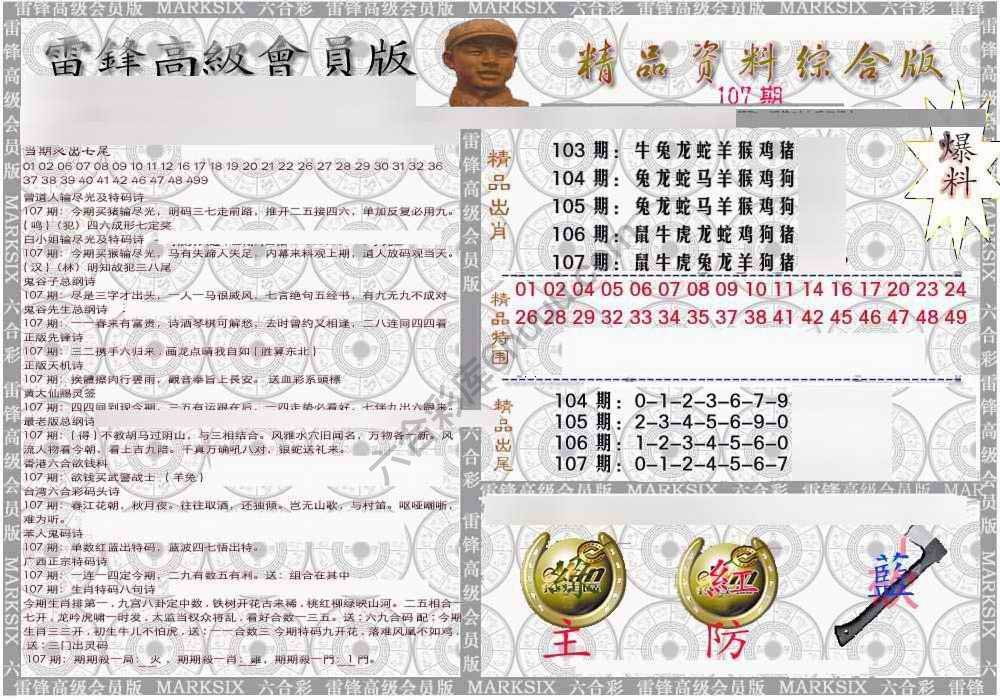 雷锋高级会员版 MARKSIX 六合彩 雷锋高级会员版 MARKSIX 六合彩 雷锋高级会员版 MARKSIX 六合彩
雷鋒高級會員版
精品资料综合版
107期
爆料
当期爻出七尾
01 02 06 07 08 09 10 11 12 16 17 18 19 20 21 22 26 27 28 29 30 31 32 36
37 38 39 40 41 42 46 47 48 499
曾道人输尽光及特码诗
107期：今期买猪输尽光，明码三七走前路，推开二五接四六，单加反复必用九。
{鸣}（犯）四六成形七定奖
白小姐输尽光及特码诗
107期：今期买猴输尽光，马有失蹄人失足，内幕来料观上期，道人放码观当天。
{汉}（林）明知故犯三八尾
鬼谷子总纲诗
107期：尽是三字才出头，一人一马很威风，七言绝句五经书，有九无九不成对
鬼谷先生总纲诗
107期：一一春来有富贵，诗酒琴棋可解愁，去时曾约又相逢，二八连同四四看
正版先锋诗
107期：三二携手六归来，画龙点睛我自如{胜算东北}
正版天机诗
107期：挨體擦肉行雲雨，觀音奉旨上長安。送血彩系頭標
黄大仙赐灵签
107期：四四回到现今期，三五有运跟在后，一四走势必看好，七伴九出六眼来。
最老版总纲诗
107期：{得}不教胡马过阴山，与三相结合。风雅水穴旧闻名，万物各一新。风
流人物看今朝，看上吉九陪。千真万确吼八对，银蛇送礼来。
香港六合欲钱料
107期：欲钱买武警战士 {羊兔}
台湾六合彩码头诗
107期：春江花朝，秋月夜。往往取酒，还独倾。岂无山歌，与村笛。呕哑嘲哳，
难为听。
本人鬼码诗
107期：单数红蓝出特码，蓝波四七悟出特。
广西正宗特码诗
107期：一连一四定今期，二九有数五有利。送：组合在其中
107期：生肖特码八句诗
今期生肖排第一，九宫八卦定中数，铁树开花古来稀，桃红柳绿映山河。二五相合
七开，龙吟虎啸一时发，太监当权众将乱，看好合数一三五。送：六九合码 配：今期
生肖三三开，初生牛儿不怕虎，送：一一合数三 今期特码九开花，落难凤凰不如鸡，
送：三门出灵码
107期：期期殺一局：火，期期殺一肖：雞，期期殺一門：1門。
精品出肖
103期：牛兔龙蛇羊猴鸡猪
104期：兔龙蛇马羊猴鸡狗
105期：兔龙蛇马羊猴鸡狗
106期：鼠牛虎龙蛇鸡狗猪
107期：鼠牛虎兔龙羊狗猪
精品特围
01 02 04 05 06 07 08 09 10 11 14 16 17 20 23 24
26 28 29 32 33 34 35 37 38 41 42 45 46 47 48 49
精品出尾
104期：0-1-2-3-6-7-9
105期：2-3-4-5-6-9-0
106期：1-2-3-4-5-6-0
107期：0-1-2-4-5-6-7
绿
主
紅
防
藍
雷锋高级会员版 MARKSIX 六合彩 雷锋高级会员版 MARKSIX 六合彩 雷锋高级会员版 MARKSIX 六合彩